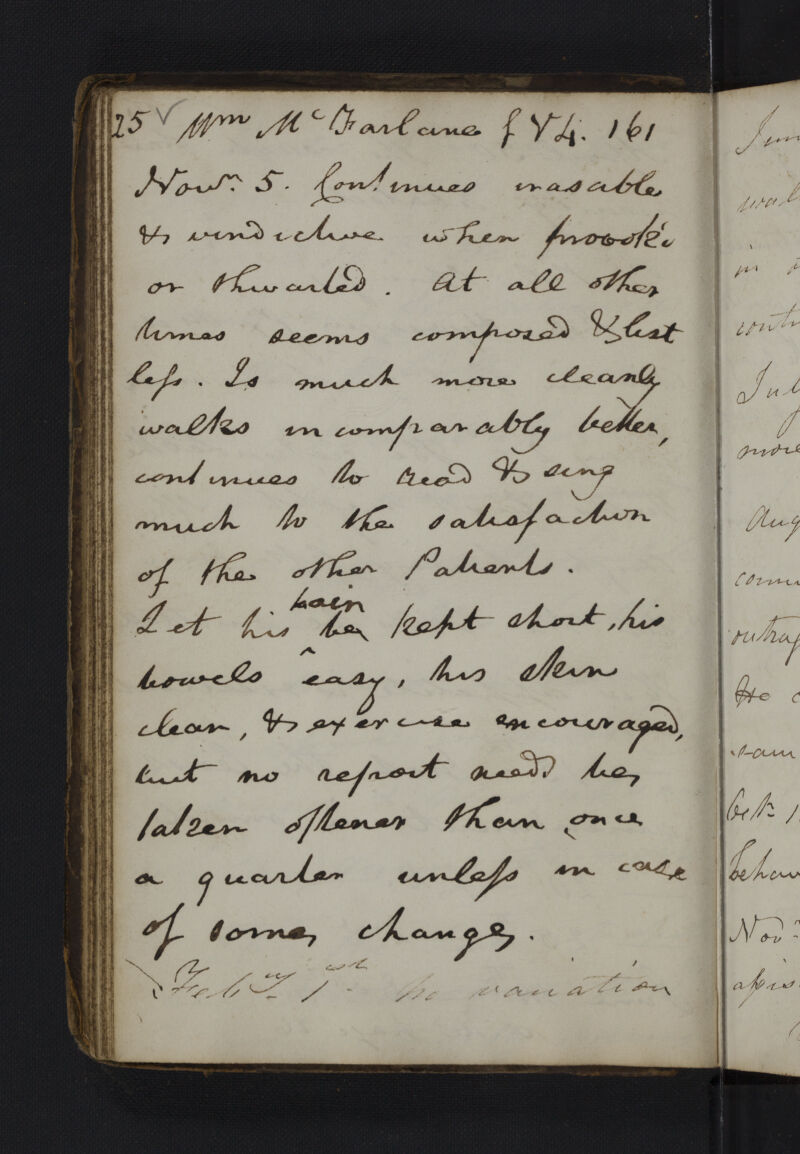 25 Wm McFarlane f V 4. 161
Novr. 5. Continues irasable
& vindictive when provok'd
or thwarted. At all other
times seems composed & list
less. Is much more cleanly
walks incomparably better,
continues to read & sing
much to the satisfaction
of the other Patients.
Let his hair be kept short, his
bowels easy, his skin
clean, & exercise encouraged,
but no report need be
taken oftener than once
a quarter unless in case
of some change.
Feby 1st no variation
in
more
Aug
He
Nov